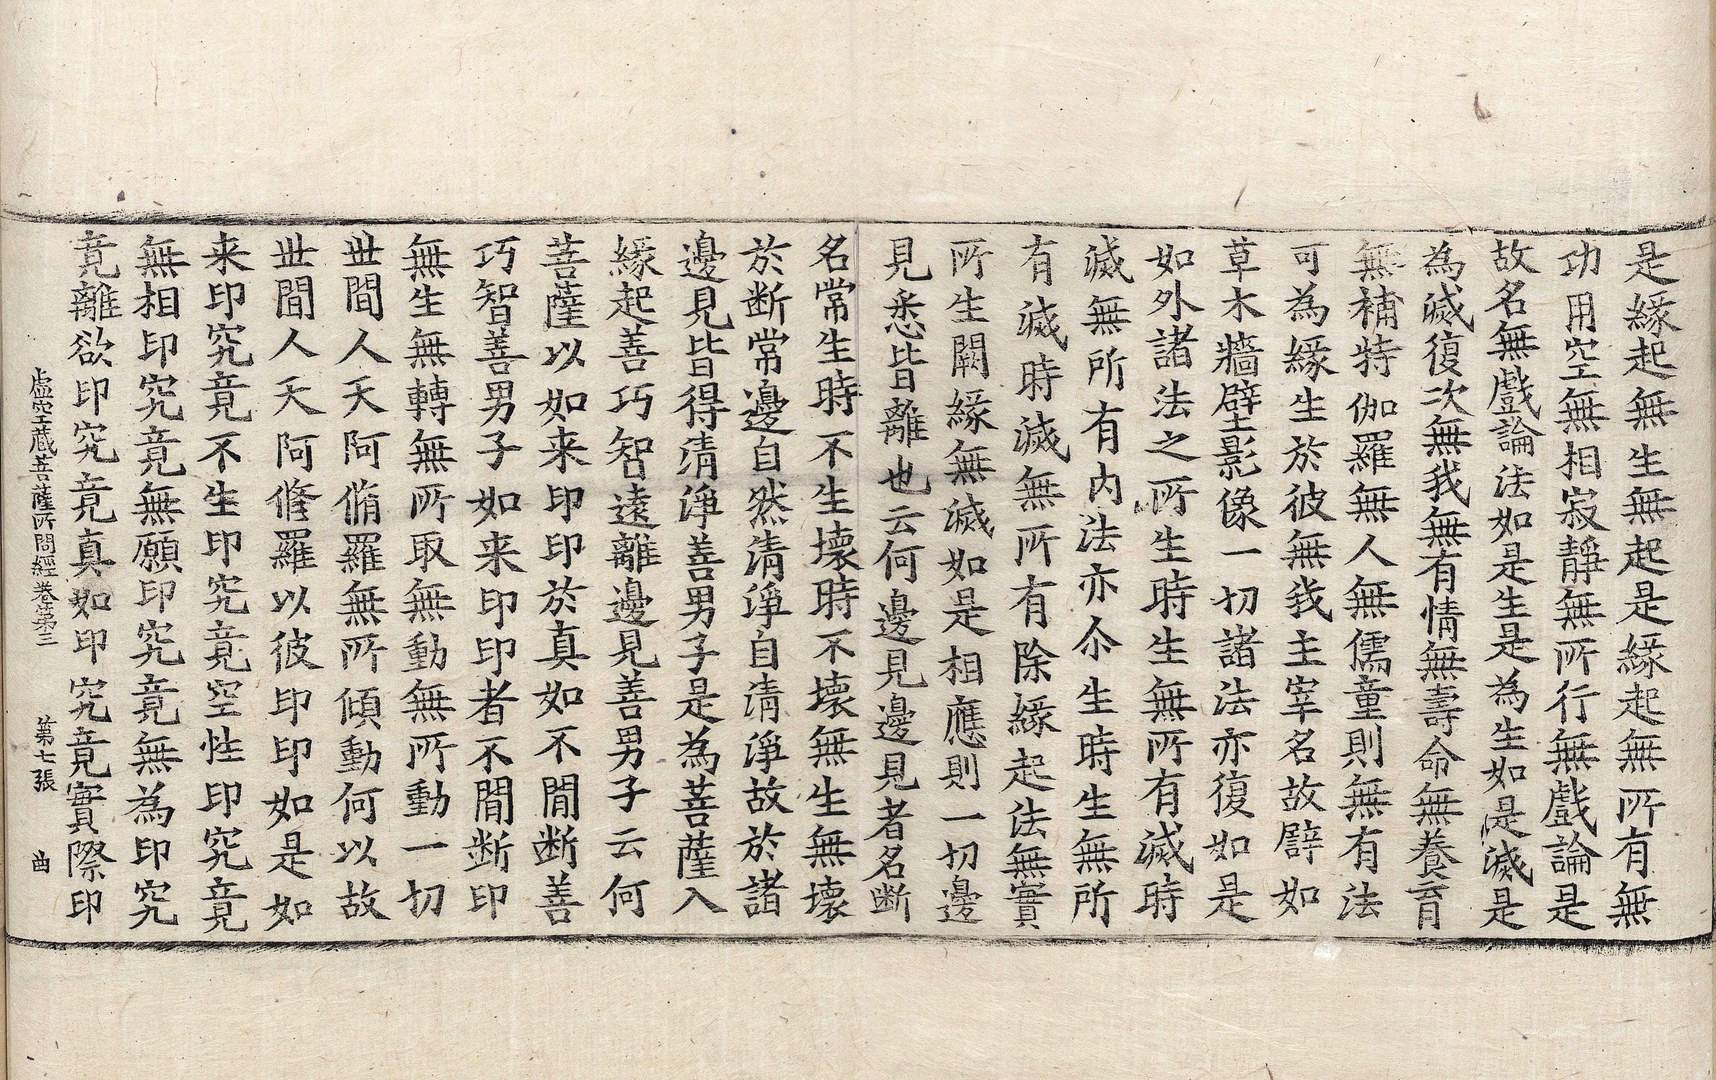 是緣起無生無起是緣起無所有無
功用空無相寂靜無所行無戲論是
故名無戲論法如是生是為生如是滅是
為滅復次無我無有情無壽命無養育
無補特伽羅無人無儒童則無有法
可為緣生於彼無我主宰名故譬如
草木牆壁影像一切諸法亦復如是
如外諸法之所生時生無所有滅時
滅無所有內法亦尒生時生無所
有滅時滅無所有除緣起法無實
所生闕緣無滅如是相應則一切邊
見悉皆離也云何邊見邊見者名斷
名常生時不生壞時不壞無生無壞
於断常邊自然清淨自清淨故於諸
邊見皆得清淨善男子是為菩薩入
緣起善巧智遠離邊見善男子云何
菩薩以如来印印於真如不間断善
巧智善男子如来印印者不間断印
無生無轉無所取無動無所動一切
丗間人天阿脩羅無所傾動何以故
丗間人天阿修羅以彼印印如是如
来印究竟不生印究竟空性印究竟
無相印究竟無願印究竟無為印究
竟離欲印究竟真如印究竟實際印
虛空藏菩薩所問經卷第三 第七張 曲